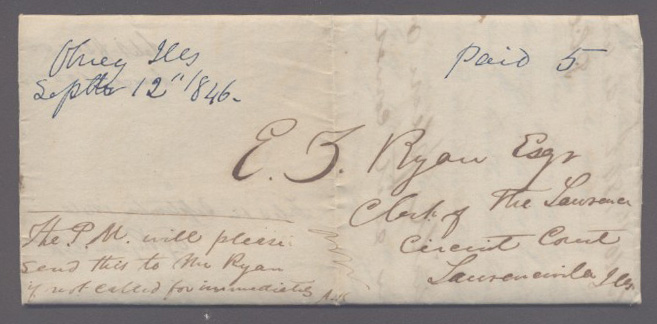 Olney Ills
Septr 12" 1846.
Paid 5
E. Z. Ryan Esqr
Clerk of The Lawrence
Circuit Court
Lawrenceville Ills
The P.M. will please
send this to Mr Ryan
if not called for immediately